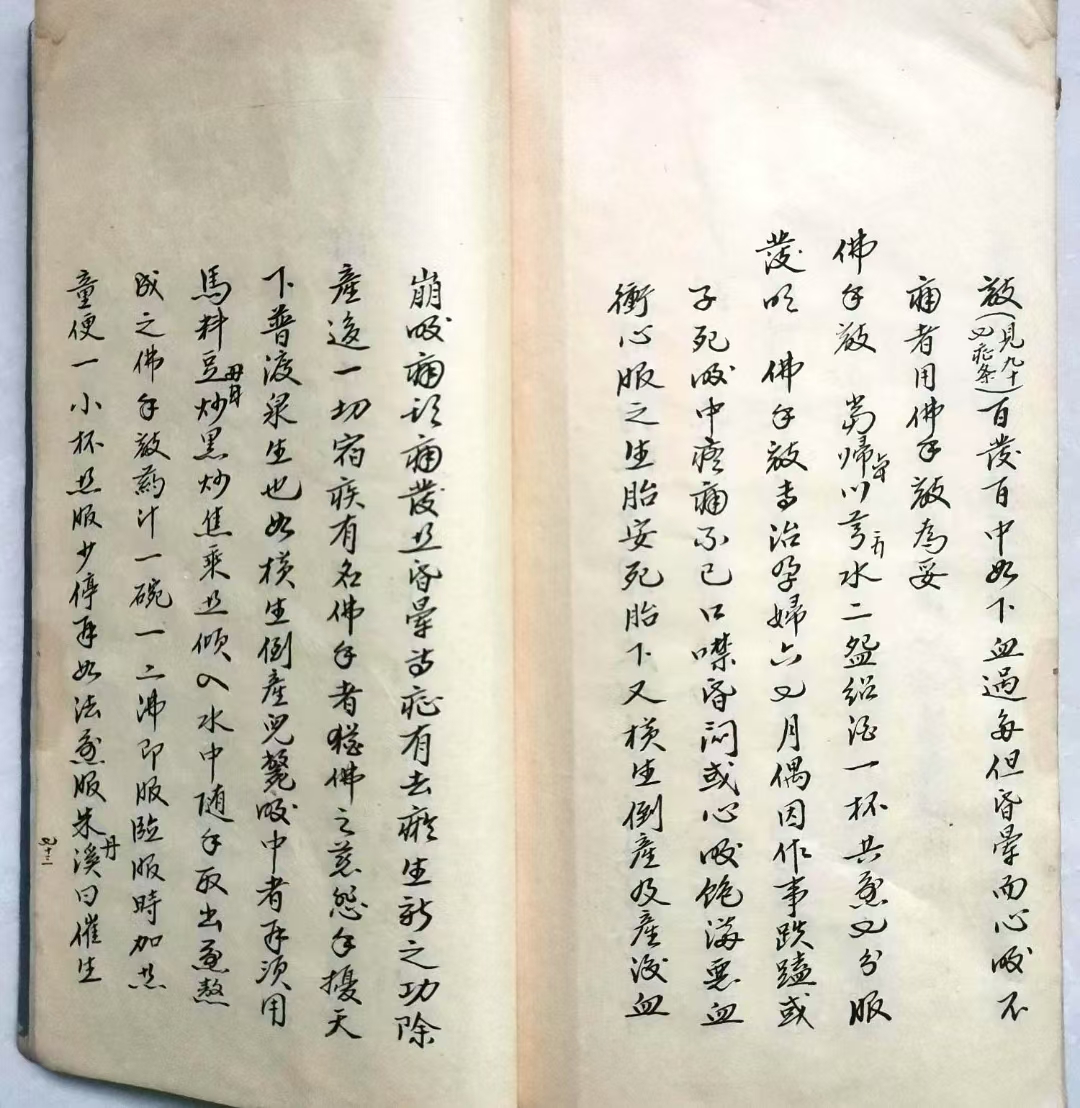 散（見九十七症条）百發百中如下血過多但昏暈而心腹不
痛者用佛手散為妥
佛手散　當歸 川芎 水二盌紹酒一杯共煎七分服
發明　佛手散專治孕婦六七月偶因作事跌磕或
子死腹中疼痛不已口噤昏悶或心腹飽滿惡血
衝心服之生胎安死胎下又橫生倒產及產後血
崩腹痛頭痛發熱昏暈等症有去瘀生新之功除
產後一切宿疾有名佛手者猶佛之慈悲手擾天
下普渡眾生也如橫生倒產兒斃腹中者再須用
馬料豆 炒黑炒焦乘熱傾入水中隨手取出煎熬
成之佛手散藥汁一碗一二沸即服臨服時加熱
童便一小杯熱服少停再如法煎服朱丹溪曰催生